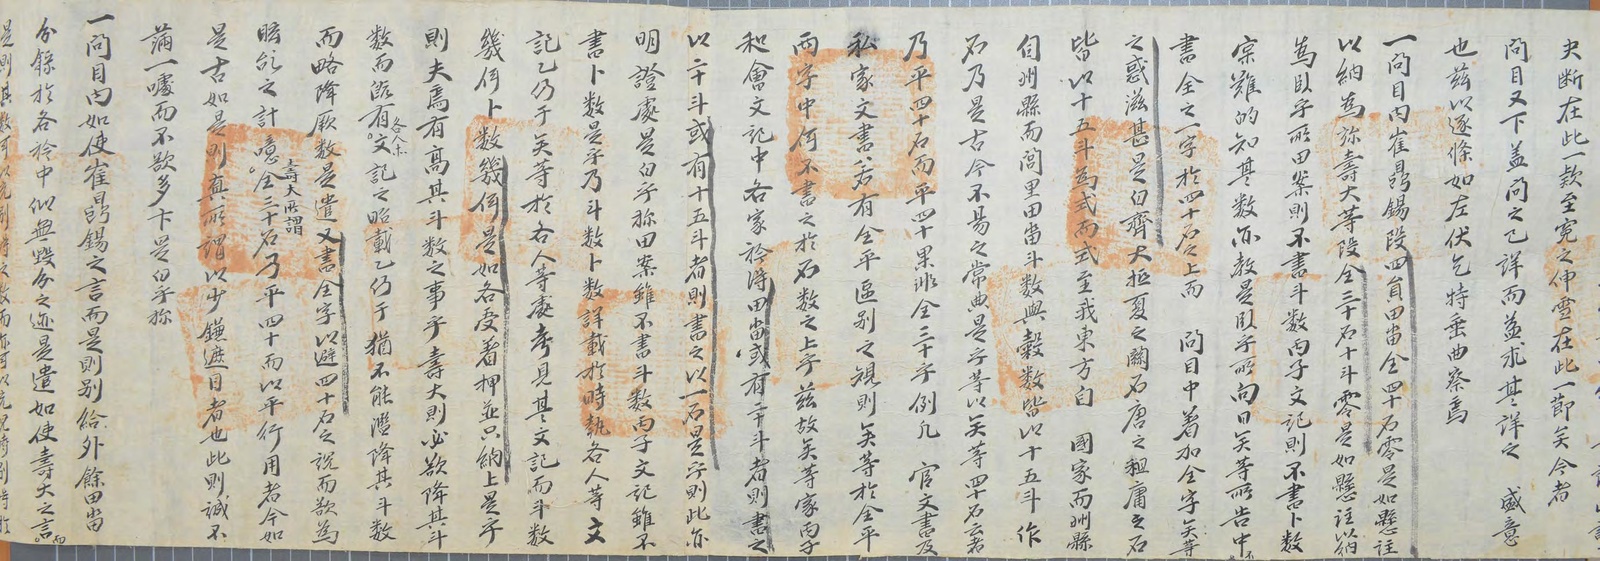 夬断在此一款至寃之伸雪在此一節矣今者
問目又下盖問之已詳而益求其詳之 盛意
也玆以逐條如左伏乞特垂曲察焉
一問目內崔昜錫段四負田畓全四十石零是如懸註
以納為旀壽大等段全三十石十斗零是如懸註以納
為臥乎所田案則不書斗数丙子文記則不書卜数
寀難的知其数亦敎是臥乎所向日矣等所告中
書全之一字於四十石之上而 問目中着加全字矣等
之惑滋甚是白齊大抵夏之關石唐之租庸之石
皆以十五斗為式而式至我東方白 國家而州縣
自州縣而閭里田畓斗数與穀数皆以十五斗作
石乃是古今不易之常典是乎等以矣等四十石云者
乃平四十石而平四十果浮全三十乎例凡 官文書及
私家文書若有全平區別之規則矣等於全平
両字中何不書之於石数之上乎玆故矣等家丙子
和會文記中各家衿得田畓或有二十斗者則書之
以二十斗或有十五斗者則書之以一石是乎則此亦
明證處是白乎旀田案雖不書斗数丙子文記雖不
書卜数是乎乃斗数卜数詳載於時執各人等文
記乙仍于矣等於各人等處考見其文記而斗数
幾何卜数幾何是如各受着押並只納上是乎
則夫焉有高其斗数之事乎壽大則必欲降其斗
数而既有各人等文記之昭載乙仍于猶不能濫降其斗数
而略降厥数是遣又書全字以避四十石之說而欲為
眩飾之計噫壽大所謂全三十石乃平四十而以平行用者今如
是古如是則真所謂以少鎌遮目者也此則誠不
滿一嚎而不欲多卞是白乎旀
一問目內如使崔昜錫之言而是則別給外餘田畓
分錄於各衿中似無毀分之迹是遣如使壽大之言而
是則其数可以